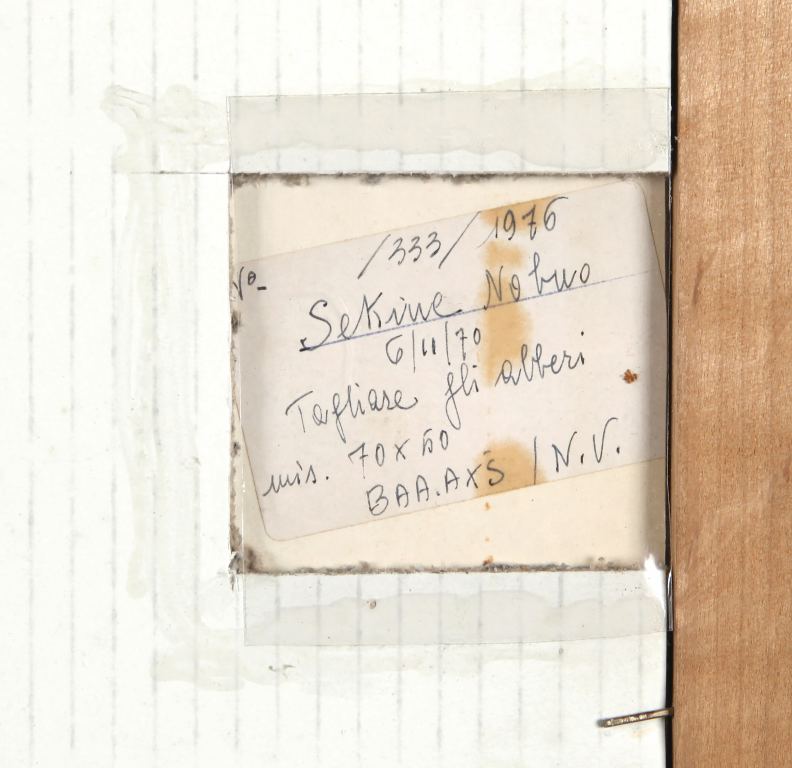 /333/1976
N°-
Sekine Nobuo
6/11/70
Tagliare gli alberi
mis. 70x50
BAA.AXS / N.V.